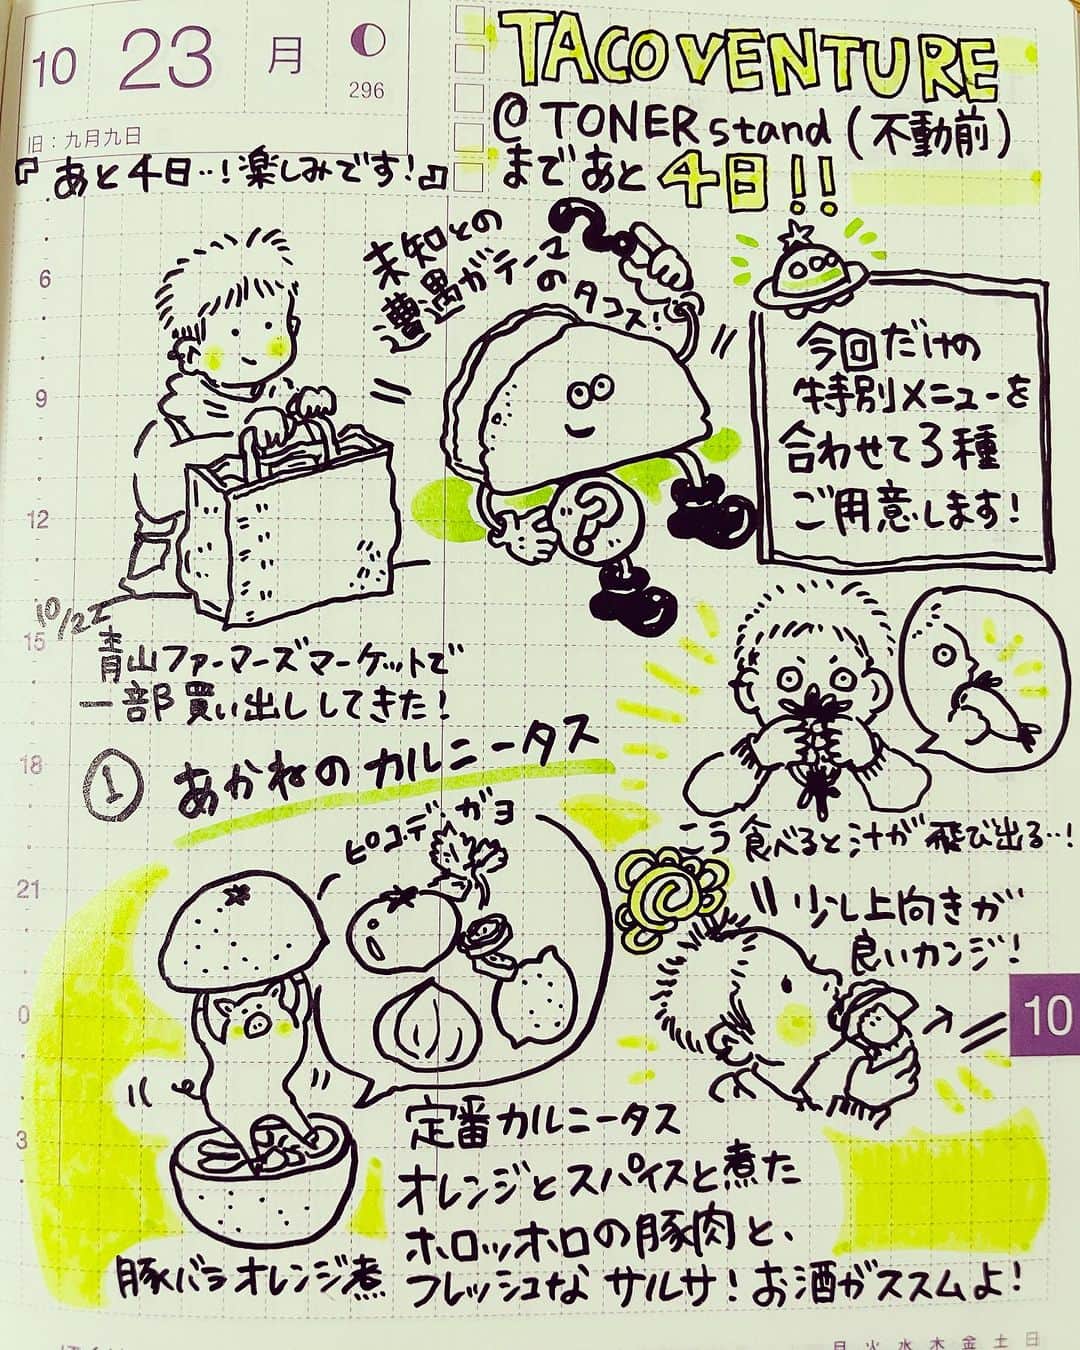 10 23 月
296
旧：九月九日
TACO VENTURE
@TONER stand (不動前)
まであと4日!!
『あと4日‥!楽しみです!』
未知との
遭遇がテーマ
のタコス!
今回だけの
特別メニューを
合わせて3種
ご用意します!
6
9
12
15
18
21
0
3
10/22
青山ファーマーズマーケットで
一部買い出ししてきた!
① あかねのカルニータス
ピコ・デ・ガヨ
こう食べると汁が飛び出る‥!
少し上向きが
良いカンジ!
10
定番カルニータス
オレンジとスパイスと煮た
ホロッホロの豚肉と、
フレッシュなサルサ!お酒がススムよ!
豚バラオレンジ煮
月 火 水 木 金 土 日